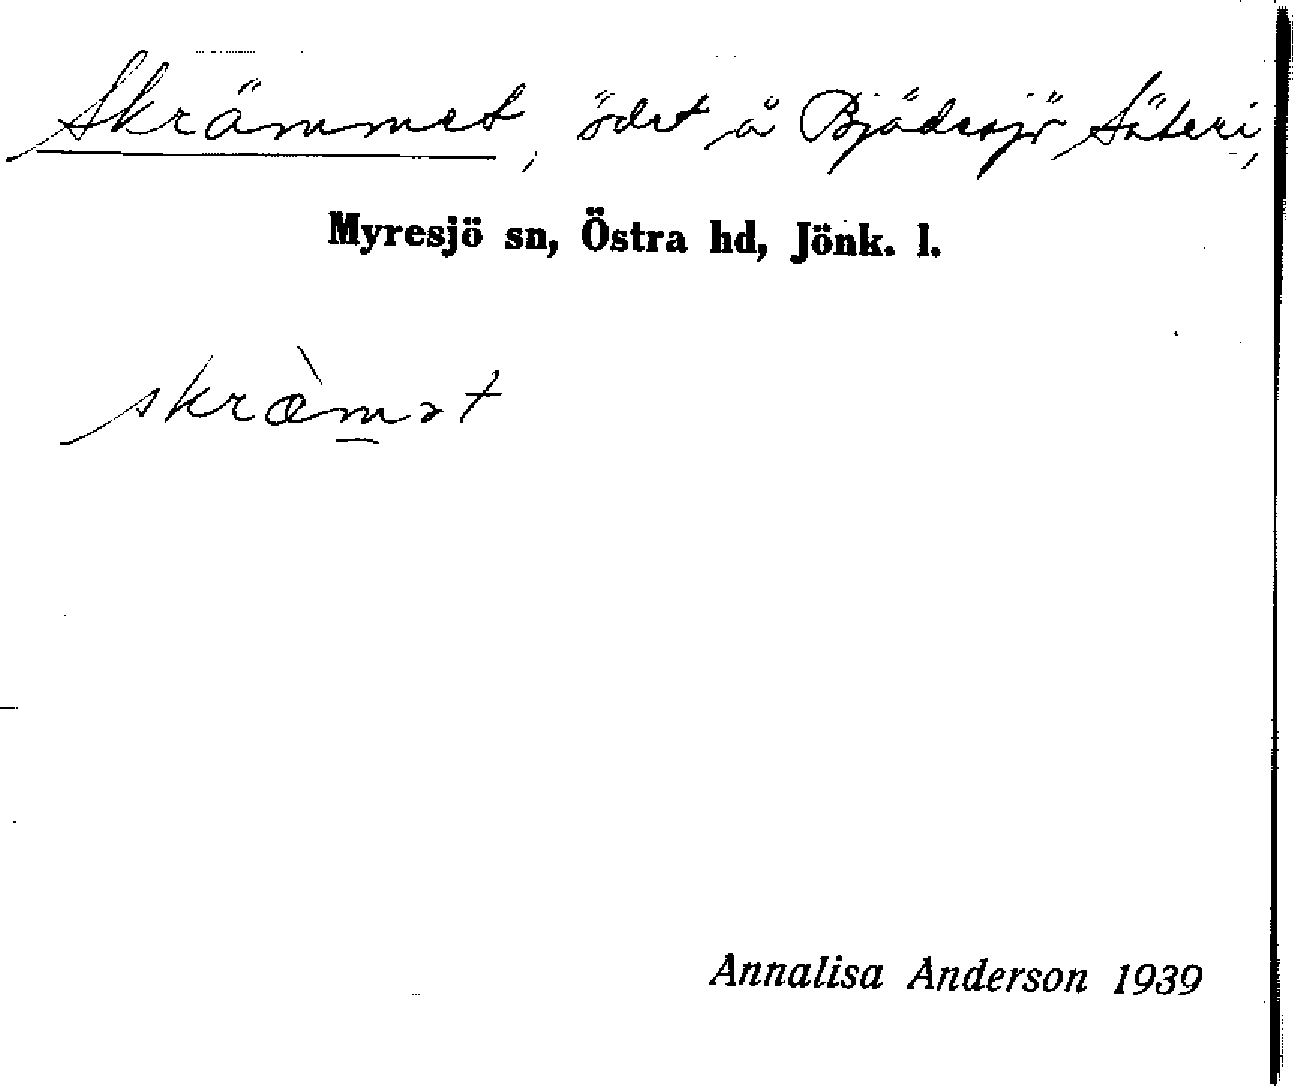 Skrämmet, ödet å Bjädesjö Säteri,
Myresjö sn, Östra hd, Jönk. l.
skræ̀m̲ət
Annalisa Anderson 1939